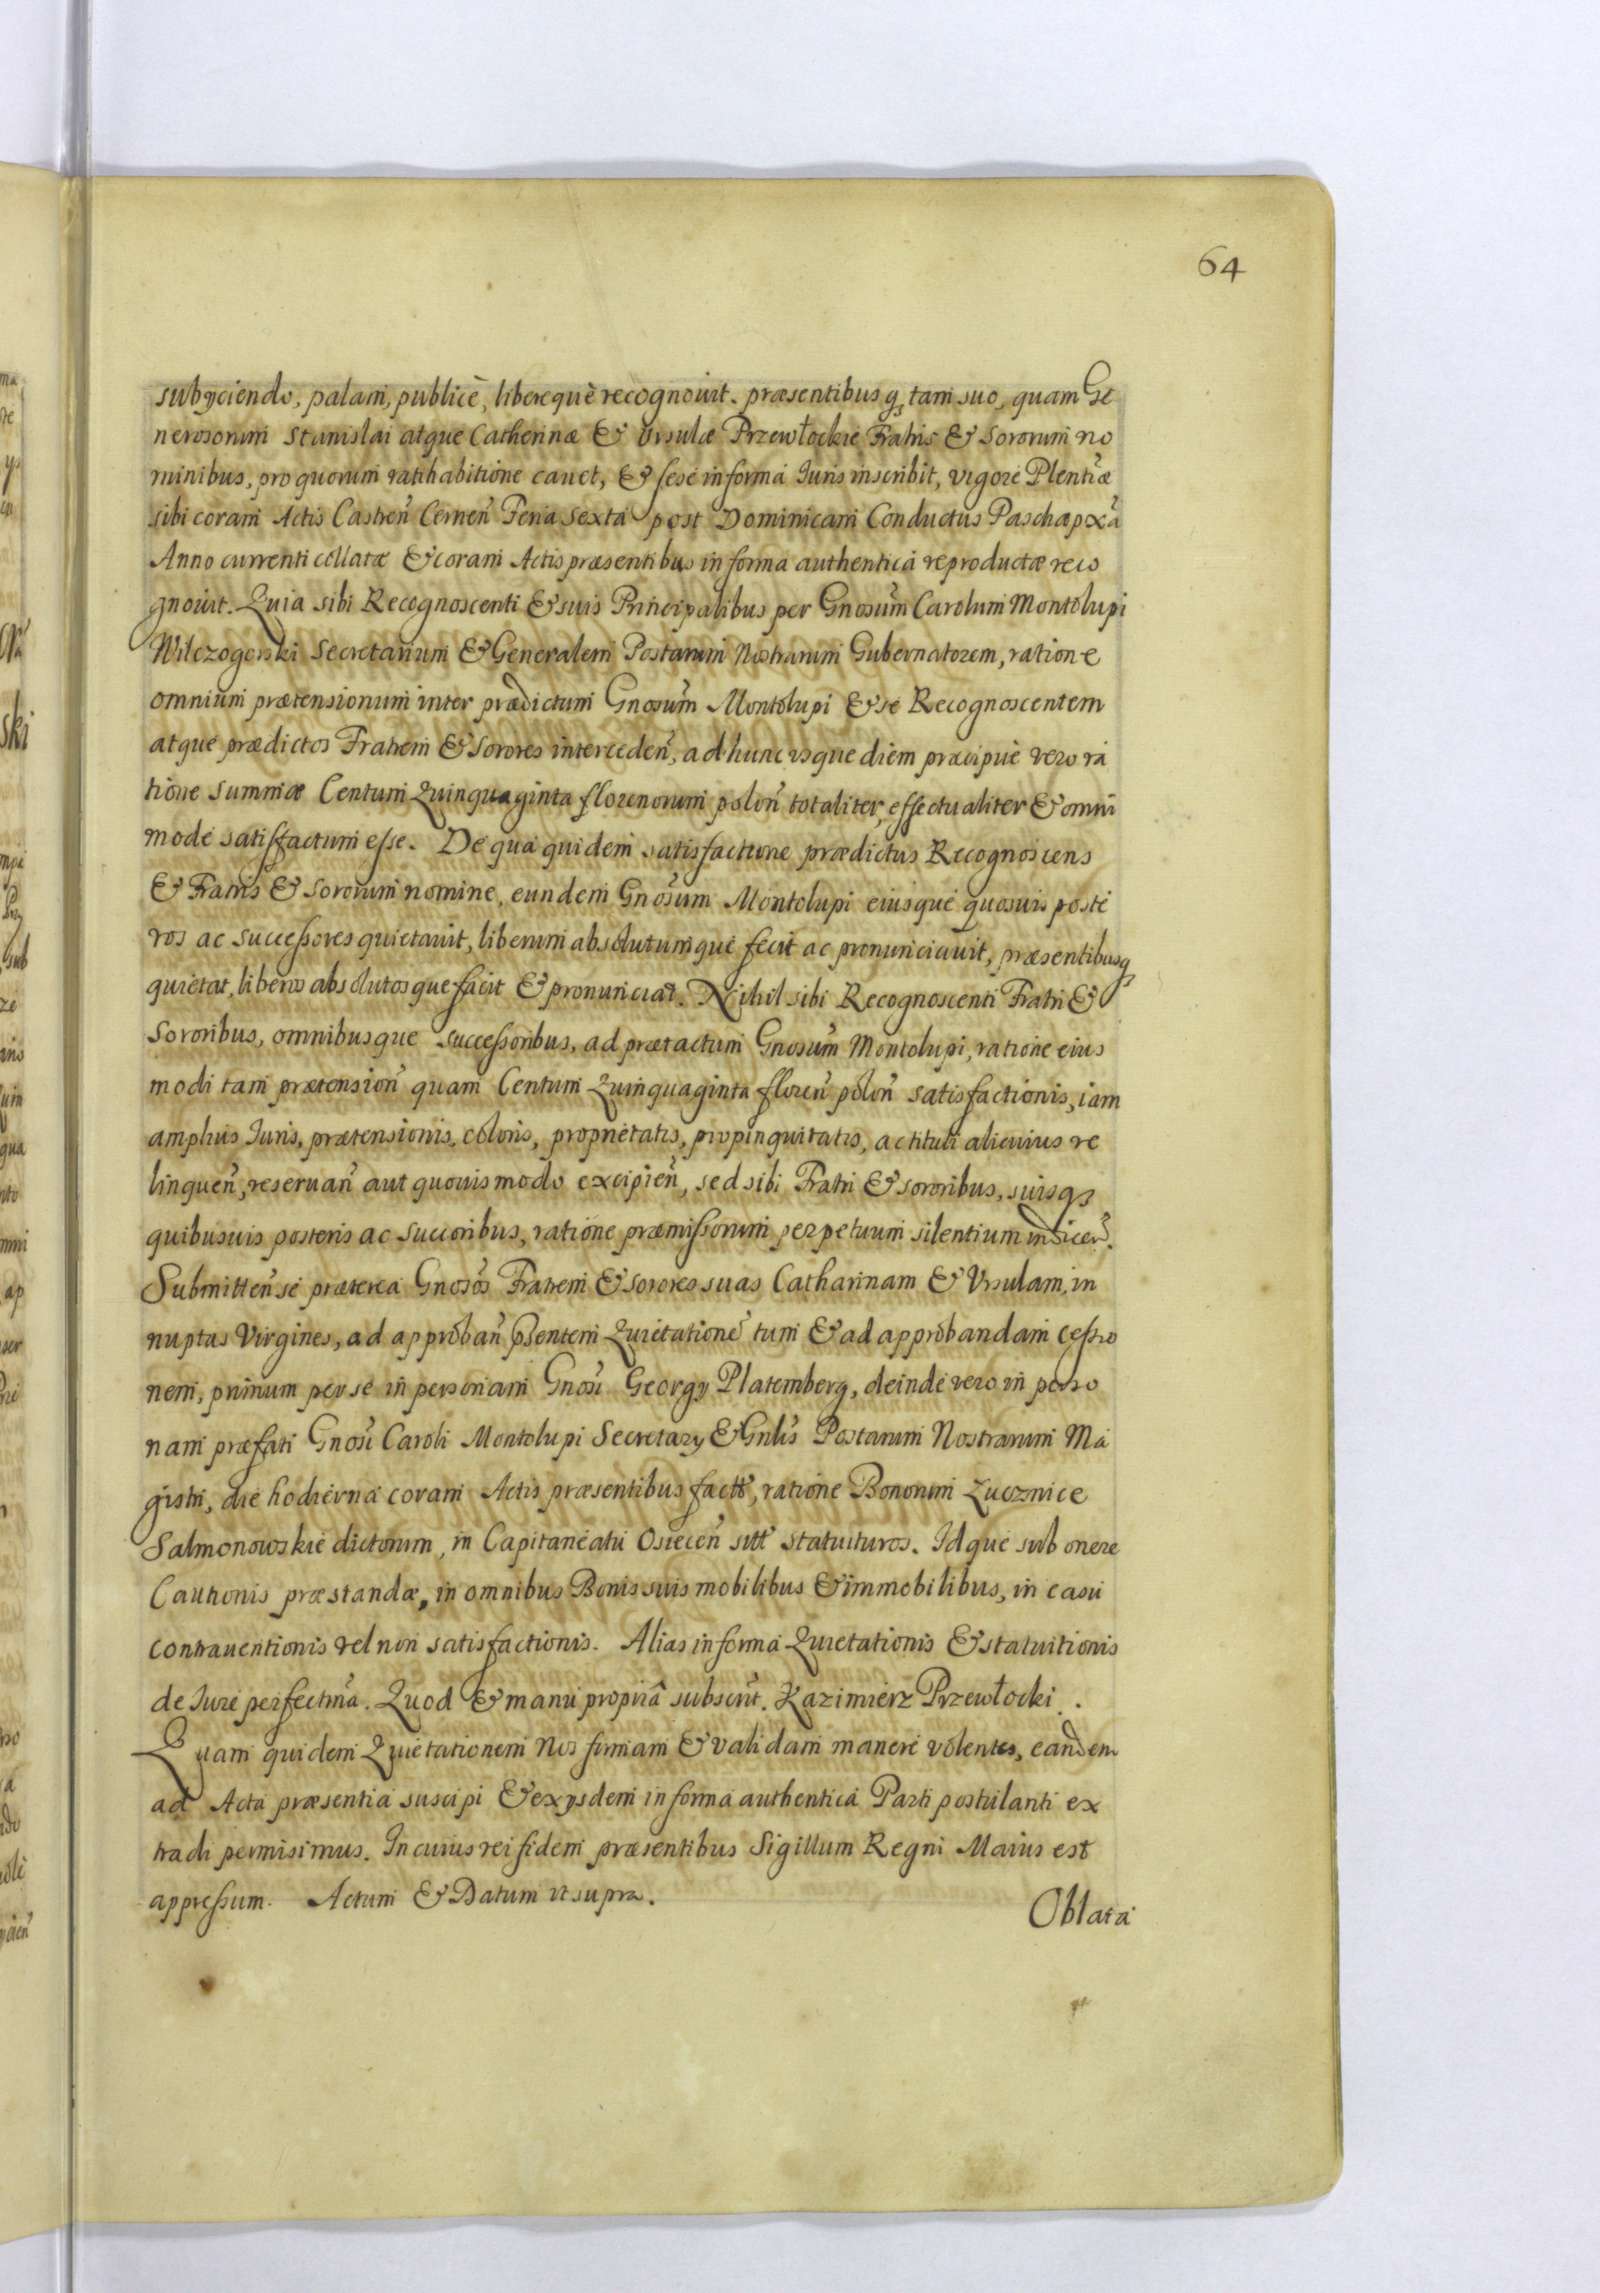 64
subijciendo, palam, publicè, liberequè recognovit. præsentibusq₃ tam suo, quam Ge
nerosorum Stanislai atque Catherinæ & Vrsulæ Przewłockie Fratris & Sororum no
minibus, pro quorum ratihabitione cavet, & sese in forma Iuris inscribit, vigore Plentiæ
sibi coram Actis Castreñ Cerneñ Feria sexta post Dominicam Conductus Paschæ pxã
Anno currenti collatæ & coram Actis præsentibus in forma authentica reproductæ reco
gnovit. Quia sibi Recognoscenti & suis Principalibus per Gnosum̃ Carolum Montolupi
Wilczogorski Secretarium & Generalem Postarum Nostrarum Gubernatorem, ratione
omnium prætensionum inter prædictum Gnosum̃ Montolupi & se Recognoscentem
atque prædictos Fratrem & Sorores intercedeñ, ad hunc usque diem præcipuè vero ra
tione summæ Centum Quinquaginta florenorum poloñ totaliter, effectualiter & omni
mode satisfactum esse. De qua quidem satisfactione prædictus Recognoscens
& Fratris & Sororum nomine, eundem Gnosum̃ Montolupi eiusque quosvis poste
ros ac successores quietavit, liberum absolutumque fecit ac pronunciavit, præsentibusq₃
quietat, liberos absolutosque facit & pronunciat. Nihil sibi Recognoscenti Fratri &
Sororibus, omnibusque successoribus, ad prætactum Gnosum̃ Montolupi, ratione eius
modi tam prætensioñ quam Centum Quinquaginta floreñ poloñ satisfactionis, iam
amplius Iuris, prætensionis, coloris, proprietatis, propinquitatis, ac tituli alicuius re
linqueñ, reservañ aut quovis modo excipieñ, sed sibi Fratri & sororibus, suisq₃
quibusvis posteris ac succoribus, ratione præmissorum perpetuum silentium indiceñ.
Submitteñ se præterea Gnosos̃ Fratrem & sorores suas Catharinam & Vrsulam, in
nuptas Virgines, ad approbañ p̃sentem Quietationẽ tum & ad approbandam cessio
nem, primum per se in personam Gnosi̇̃ Georgij Platemberg, deinde vero in perso
nam præfati Gnosi̇̃ Caroli Montolupi Secretarij & Gnlis̃ Postarum Nostrarum Ma
gistri, die hodierna coram Actis præsentibus factt̃, ratione Bonorum Lucznice
Salmonowskie dictorum, in Capitaneatu Osieceñ sitt̃ statuituros. Idque sub onere
Cautionis præstandæ, in omnibus Bonis suis mobilibus & immobilibus, in casu
contraventionis vel non satisfactionis. Alias in forma Quietationis & statuitionis
de Iure perfectis̃ma. Quod & manu propriâ subscrit̃. Kazimierz Przewłocki.
Quam quidem Quietationem Nos firmam & validam manere volentes, eandem
ad Acta præsentia suscipi & ex ijsdem in forma authentica Parti postulanti ex
tradi permisimus. In cuius rei fidem præsentibus Sigillum Regni Maius est
appressum. Actum & Datum ut supra.
Oblata